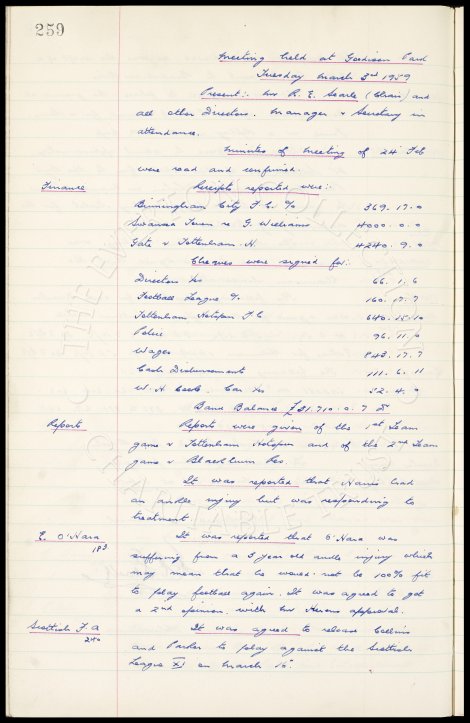 259
Meeting held at Goodison Park
Tuesday March 3rd 1959
Present:- Mr R. E. Searle (Chair) and
all other Directors. Manager & Secretary in
attendance.
Minutes of Meeting of 24 Feb
were read and confirmed.
Finance
Receipts reported were:-
Birmingham City F.C. % 369.17.0
Swansea Town re G. Williams 4000.0.0
Gate v Tottenham H 4240.9.0
Cheques were signed for:-
Directors Xs 66.1.6
Football League % 160.17.7
Tottenham Hotspur F C 640.15.10
Police 96.11.0
Wages 848.17.7
Cash Disbursement 111.6.11
W. H. Cooke. Car Xs 52.4.9
Bank Balance £31.710.0.7
Reports
Reports were given of the 1st Team
game v Tottenham Hotspur and of the 2nd Team
game v Blackburn Res.
It was reported that Harris had
an ankle injury but was responding to
treatment
E. O'Hara
183
It was reported that O'Hara was
suffering from a 3 year old ankle injury which
may mean that he would not be 100% fit
to play football again. It was agreed to get
a 2nd opinion with Mr Herons approval.
Scottish F. A
240
It was agreed to release Collins
and Parker to play against the Scottish
League XI on March 16.
THE EVERTON COLLECTION
CHARITABLE TRUST